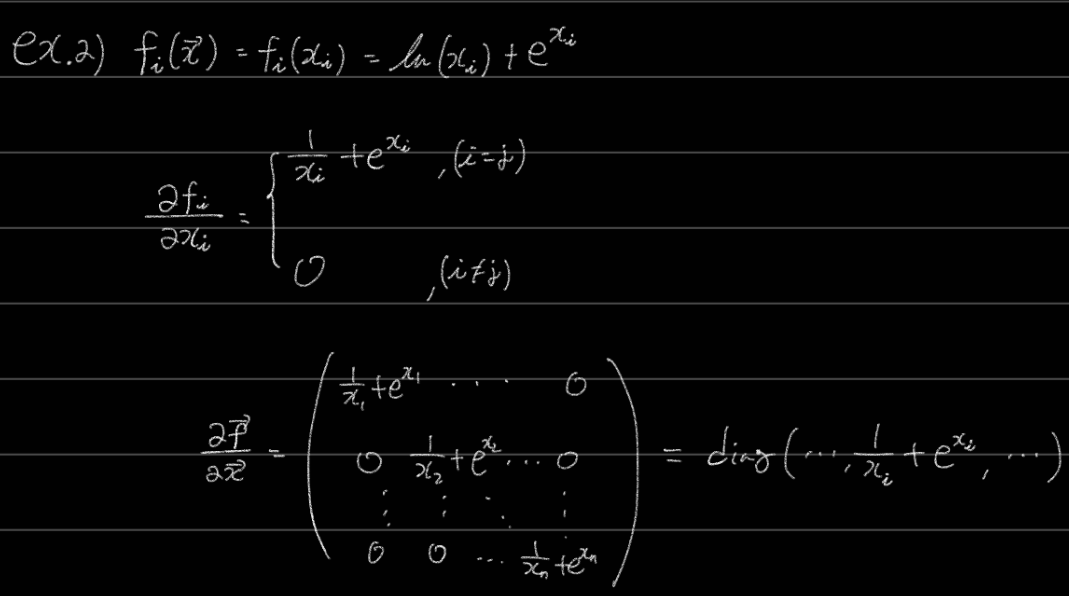 ex.2) f_i(x⃗) = f_i(x_i) = ln(x_i) + e^{x_i}
∂f_i/∂x_i = { 1/x_i + e^{x_i} , (i=j)
0 , (i≠j)
∂f⃗/∂x⃗ = ( 1/x_1 + e^{x_1} ... 0
0 1/x_2 + e^{x_2} ... 0
⋮ ⋮ ⋱ ⋮
0 0 ... 1/x_n + e^{x_n} ) = diag(..., 1/x_i + e^{x_i}, ...)